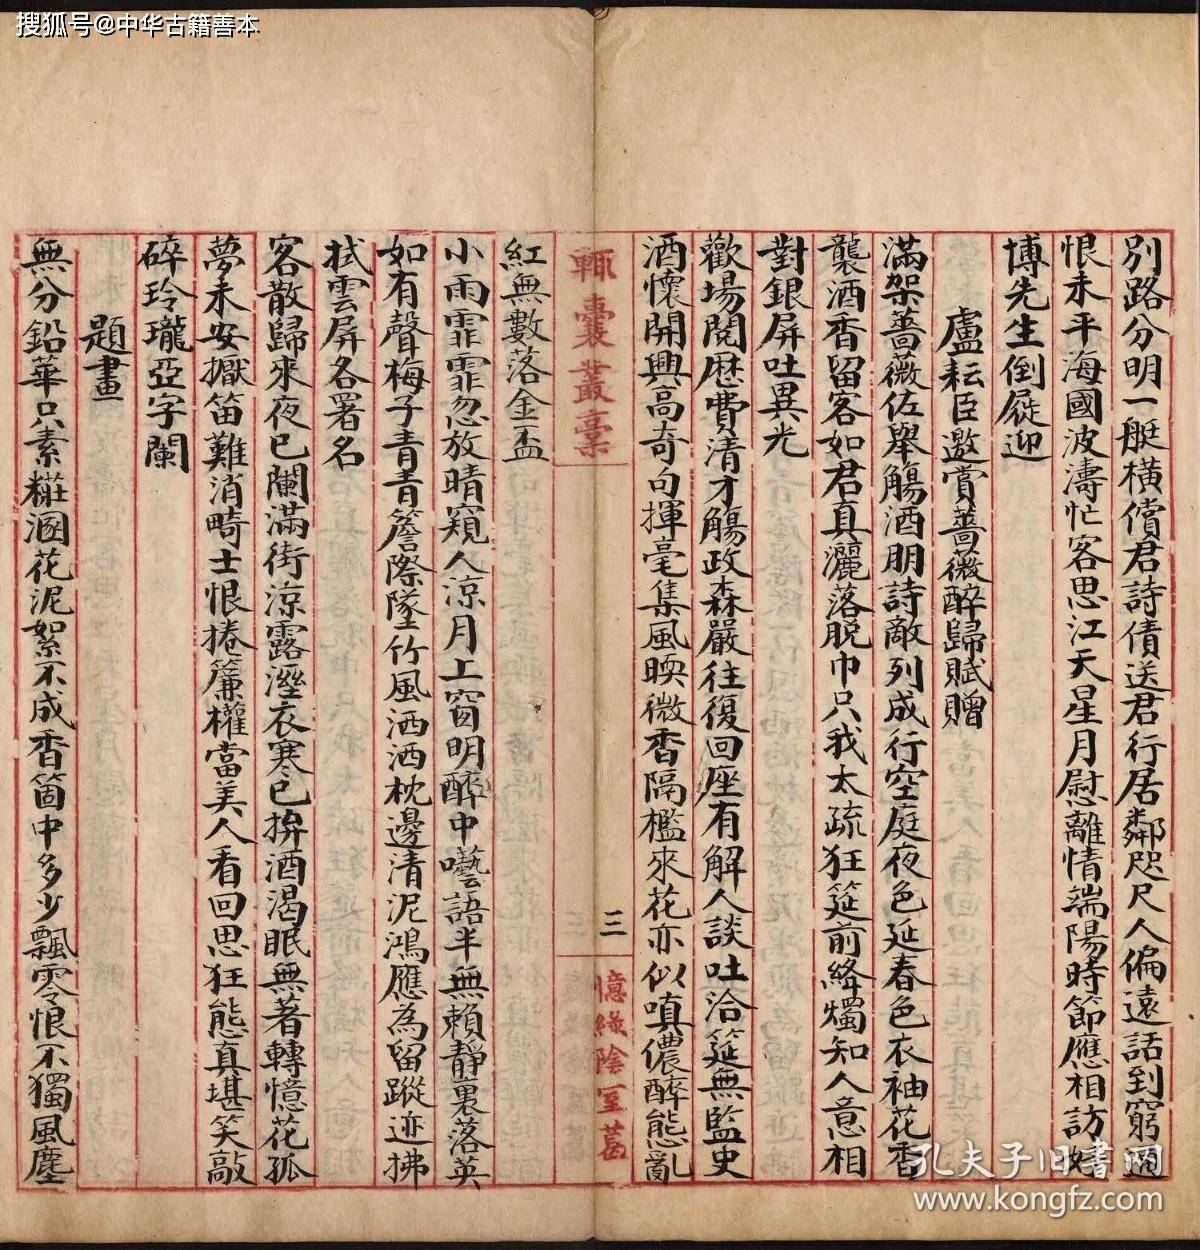 搜狐号@中华古籍善本
別路分明一艇橫償君詩債送君行居鄰咫尺人偏遠話到窮通
恨未平海國波濤忙客思江天星月慰離情端陽時節應相訪好
博先生倒屣迎
盧耘臣邀賞薔薇醉歸賦贈
滿架薔薇佐舉觴酒朋詩敵列成行空庭夜色延春色衣袖花香
襲酒香留客如君真灑落脫巾只我太疏狂筵前絳燭知人意相
對銀屏吐異光
歡場閱歷費清才觴政森嚴往復回座有解人談吐洽筵無監史
酒懷開興高奇句揮毫集風暎微香隔檻來花亦似嗔儂醉態亂
輒囊叢稾
三
憶綠陰室葛
紅無數落金盃
小雨霏霏忽放晴窺人涼月上窗明醉中囈語半無賴靜裏落英
如有聲梅子青青簷際墜竹風洒洒枕邊清泥鴻應為留蹤迹拂
拭雲屏各署名
客散歸來夜已闌滿街涼露溼衣寒已拚酒渴眠無著轉憶花孤
夢未安擫笛難消畸士恨捲簾權當美人看回思狂態真堪笑敲
碎玲瓏亞字闌
題畫
無分鉛華只素糚溷花泥絮不成香箇中多少飄零恨不獨風塵
孔夫子旧书网
www.kongfz.com